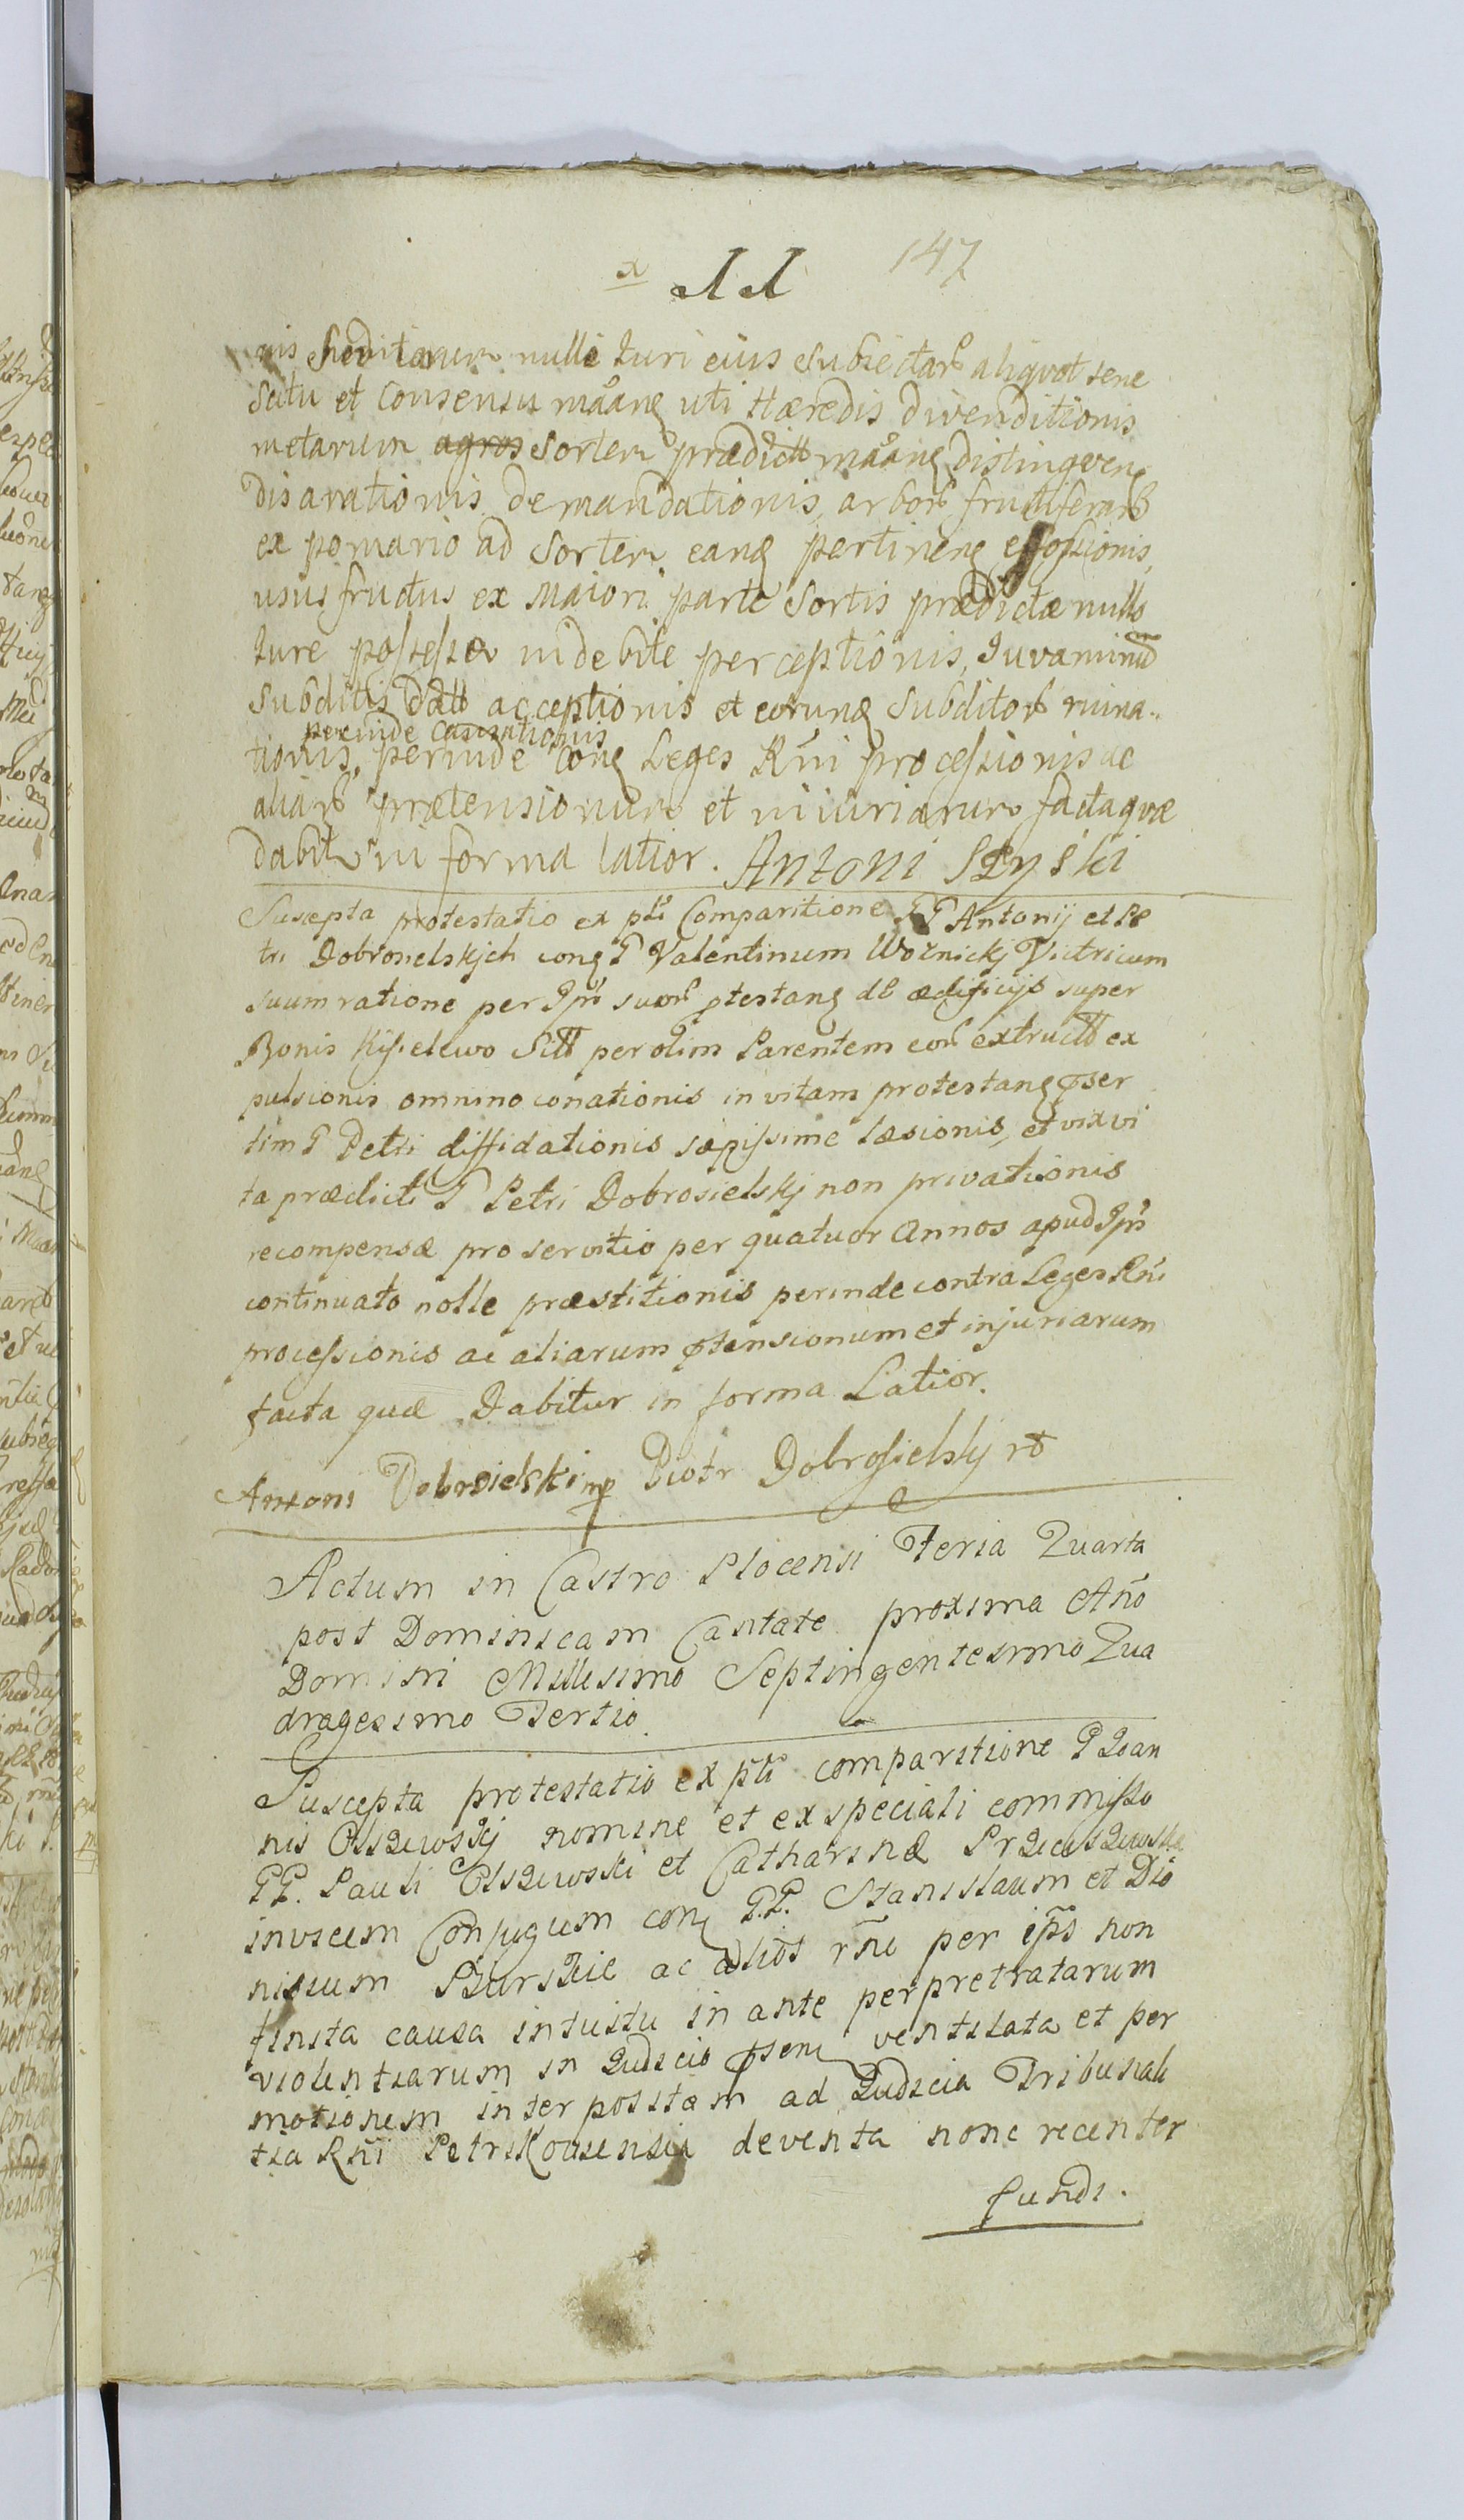 x 11 147
nis heditarum nulli Iuri eius subiectarb aliquot sene
scitu et consensu maang uti Hæredis divenditionis
metarum agros sortem prædictt maang distinguen
disarationis demandationis, arborb fructiferarb
ex pomario ad sortem eang pertineng effossionis,
usus fructus ex Maiori parte sortis prædictæ nullo
Iure possessæ indebite perceptionis, Iuvaminud
subditis datt acceptionis et eorung subditorb ruina-
perinde causationis
tionis, perinde cong Leges Rñi processionis ac
aliarb prætensionum et iniuriarum facta quæ
dabitr in forma latior. Antoni Szyski
Suscepta protestatio ex pti Comparitione GG Antonij et Pe
tri Dobrosielskich cong G Valentinum Woznickj Victricum
suum ratione per Ipñ suorb ptestang de ædificijs super
Bonis Kisielewo Sitt per olim Parentem eorb extructt ex
pulsionis omnino conationis in vitam protestang pser
tim G Petri diffidationis sæpissime læsionis, et vix vi
ta prædicti G Petri Dobrosielskj non privationis
recompensæ pro servitio per quatuor Annos apud Ipñ
continuato nolle præstitionis perinde contra Leges Rñi
processionis ac aliarum ptensionum et injuriarum
facta quæ Dabitur in forma Latior.
Antoni Dobrosielski mp Piotr Dobrosielskj
Actum in Castro Plocensi Feria Quarta
post Dominicam Cantate proxima Año
Domini Millesimo Septingentesimo Qua
dragesimo Tertio
Suscepta protestatio ex pti comparitione G Ioan
nis Olszewskj nomine et ex speciali commisso
GG. Pauli Olszewski et Catharinæ Przeciszewska
invicem Conjugum cong G.G. Stanislaum et Dio
nisium Szurskie ac alios rñe per ipõs non
finita causa intuitu in ante perpretratarum
violentiarum in Iudicio pseng ventilata et per
motionem interpositam ad Iudicia Tribunali
tia Rñi Petrikoviensia deventa nonc recenter
fundi.